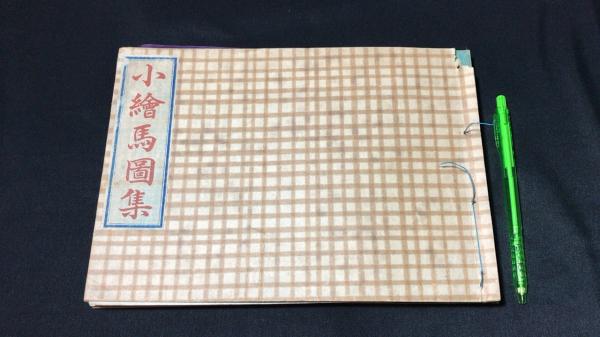 小繪馬圖集